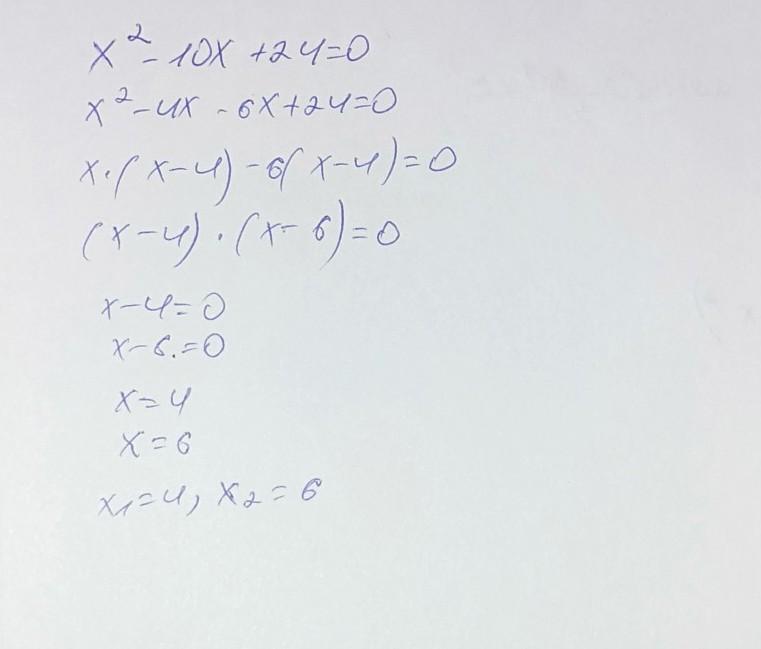 x² - 10x + 24 = 0
x² - 4x - 6x + 24 = 0
x · (x - 4) - 6(x - 4) = 0
(x - 4) · (x - 6) = 0
x - 4 = 0
x - 6. = 0
x = 4
x = 6
x₁ = 4, x₂ = 6